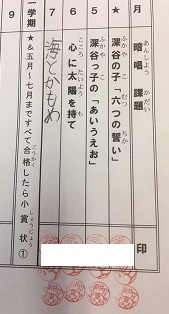 月 暗唱 課題 印
あんしょう かだい
★ 深谷っ子「六つの誓い」
ふかや こ むっ ちか
5 深谷っ子の「あいうえお」
ふかや こ
6 心に太陽を持て
こころ たいよう も
7 海とかもめ
一学期 ★&五月～七月まですべて合格したら小賞状①
ごうかく しょうじょう
9